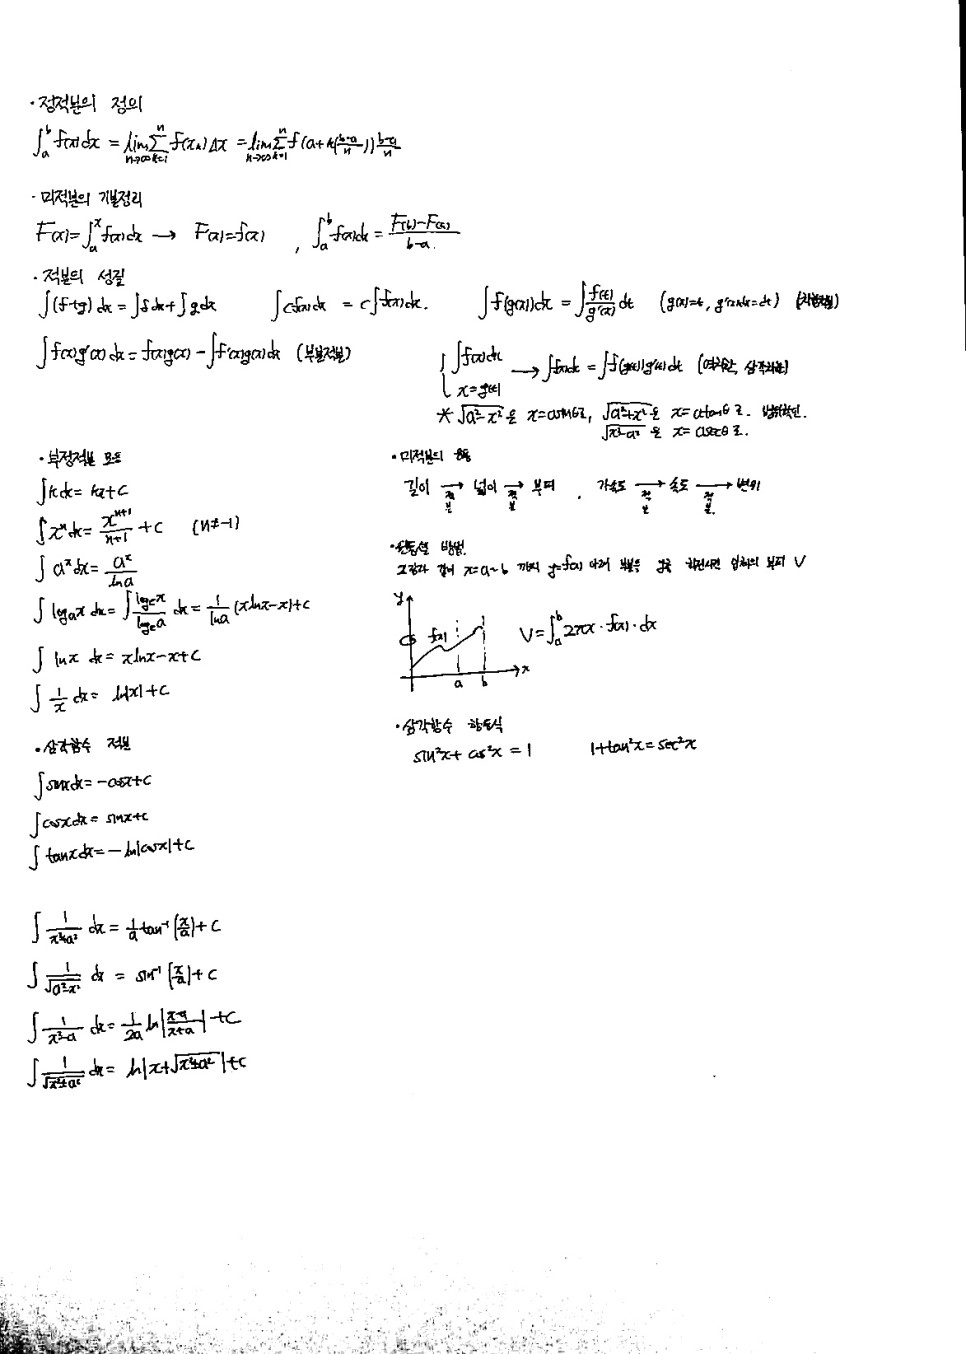 · 정적분의 정의
∫_a^b f(x)dx = lim_{n→∞} Σ_{k=1}^n f(x_k) Δx = lim_{n→∞} Σ_{k=1}^n f(a+k(\frac{b-a}{n})) \frac{b-a}{n}
· 미적분의 기본정리
F(x)=∫_a^x f(x)dx → F(x)=f(x) , ∫_a^b f(x)dx = \frac{F(b)-F(a)}{b-a}.
· 적분의 성질
∫(f+g) dx = ∫f dx + ∫g dx ∫cf(x)dx = c∫f(x)dx. ∫f(g(x))dx = ∫\frac{f(t)}{g'(x)} dt (g(x)=t, g'(x)dx=dt) (치환적분)
∫f(x)g'(x) dx = f(x)g(x) - ∫f'(x)g(x)dx (부분적분)
∫f(x)dx
x=g(t)
→ ∫f(x)dx = ∫f(g(t))g'(t)dt (역치환, 삼각치환)
* √(a²-x²) 은 x=asinθ로, √(a²+x²) 은 x=atanθ로.
√(x²-a²) 은 x=asecθ로.
· 부정적분 모음
∫k dx = kx+C
∫xⁿ dx = \frac{x^{n+1}}{n+1} + C (n≠-1)
∫ a^x dx = \frac{a^x}{ln a}
∫ log_a x dx = ∫\frac{log_e x}{log_e a} dx = \frac{1}{ln a} (xlnx-x)+C
∫ lnx dx = xlnx-x+C
∫ \frac{1}{x} dx = ln|x|+C
· 삼각함수 적분
∫sinxdx = -cosx+C
∫cosxdx = sinx+C
∫tanxdx = -ln|cosx|+C
∫ \frac{1}{x²+a²} dx = \frac{1}{a} tan⁻¹(\frac{x}{a})+C
∫ \frac{1}{√(a²-x²)} dx = sin⁻¹(\frac{x}{a})+C
∫ \frac{1}{x²-a} dx = \frac{1}{2a} ln|\frac{x-a}{x+a}|+C
∫ \frac{1}{√(x²±a²)} dx = ln|x+√(x²±a²)|+C
· 미적분의 응용
길이 →적분 넓이 →적분 부피 , 가속도 →적분 속도 →적분. 변위
방법.
x=a~b 까지 y=f(x) 아래 부분을 y축 회전시킨 입체의 부피 V
y
f(x)
a b x
V=∫_a^b 2πx · f(x) · dx
· 삼각함수 항등식
sin²x + cos²x = 1 1+tan²x = sec²x